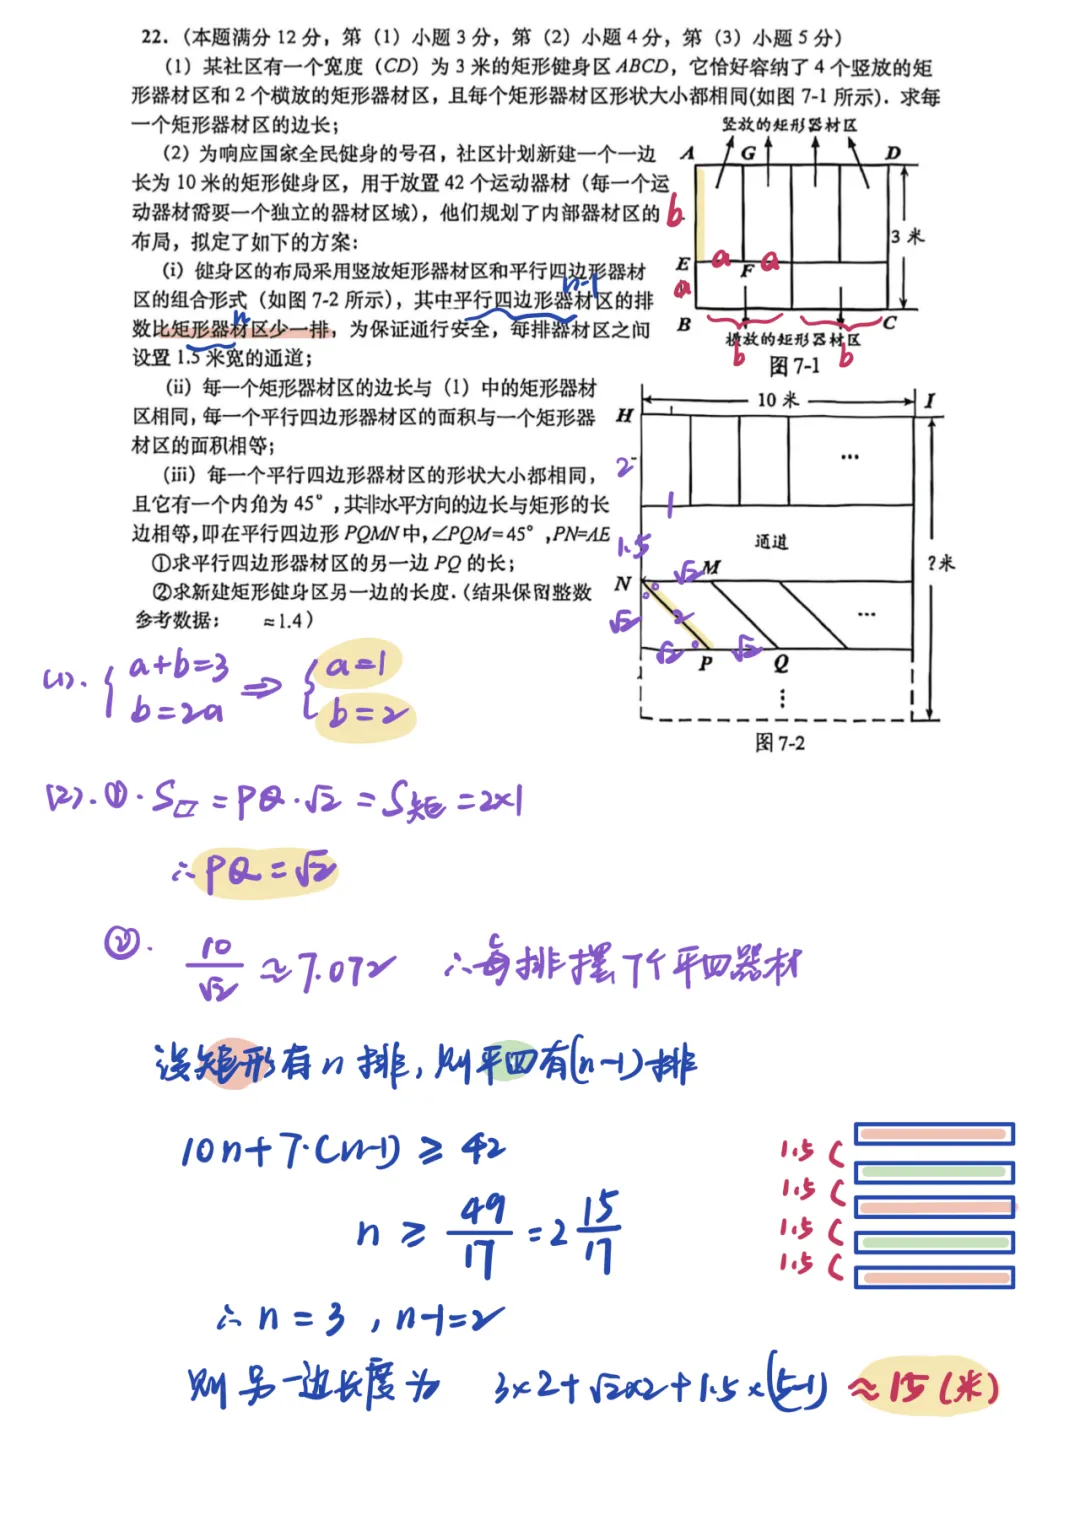 22. (本题满分 12 分，第 (1) 小题 3 分，第 (2) 小题 4 分，第 (3) 小题 5 分)
(1) 某社区有一个宽度 (CD) 为 3 米的矩形健身区 ABCD，它恰好容纳了 4 个竖放的矩
形器材区和 2 个横放的矩形器材区，且每个矩形器材区形状大小都相同(如图 7-1 所示). 求每
一个矩形器材区的边长；
(2) 为响应国家全民健身的号召，社区计划新建一个一边
长为 10 米的矩形健身区，用于放置 42 个运动器材 (每一个运
动器材需要一个独立的器材区域)，他们规划了内部器材区的
布局，拟定了如下的方案：
(i) 健身区的布局采用竖放矩形器材区和平行四边形器材
n-1
区的组合形式 (如图 7-2 所示)，其中平行四边形器材区的排
n
数比矩形器材区少一排，为保证通行安全，每排器材区之间
设置 1.5 米宽的通道；
(ii) 每一个矩形器材区的边长与 (1) 中的矩形器材
区相同，每一个平行四边形器材区的面积与一个矩形器
材区的面积相等；
(iii) 每一个平行四边形器材区的形状大小都相同，
且它有一个内角为 45°，其非水平方向的边长与矩形的长
边相等，即在平行四边形 PQMN 中，∠PQM=45°，PN=AE
①求平行四边形器材区的另一边 PQ 的长；
②求新建矩形健身区另一边的长度. (结果保留整数
参考数据： ≈1.4)
竖放的矩形器材区
A G D
b
3 米
E a F a
a
B C
横放的矩形器材区
b b
图 7-1
10 米
H I
2
...
1
1.5 通道
?米
N √2 M
√2 2 ...
√2 P √2 Q
⋮
图 7-2
(1). { a+b=3 b=2a ⇒ { a=1 b=2
(2). ①. S▱ = PQ·√2 = S矩 = 2×1
∴ PQ = √2
②. 10/√2 ≈ 7.072 ∴每排摆7个平四器材
设矩形有 n 排，则平四有(n-1)排
10n+7·(n-1) ≥ 42
n ≥ 49/17 = 2 15/17
∴ n = 3 , n-1=2
则另一边长度为 3×2+√2×2+1.5×(5-1) ≈ 15 (米)
1.5 (
1.5 (
1.5 (
1.5 (